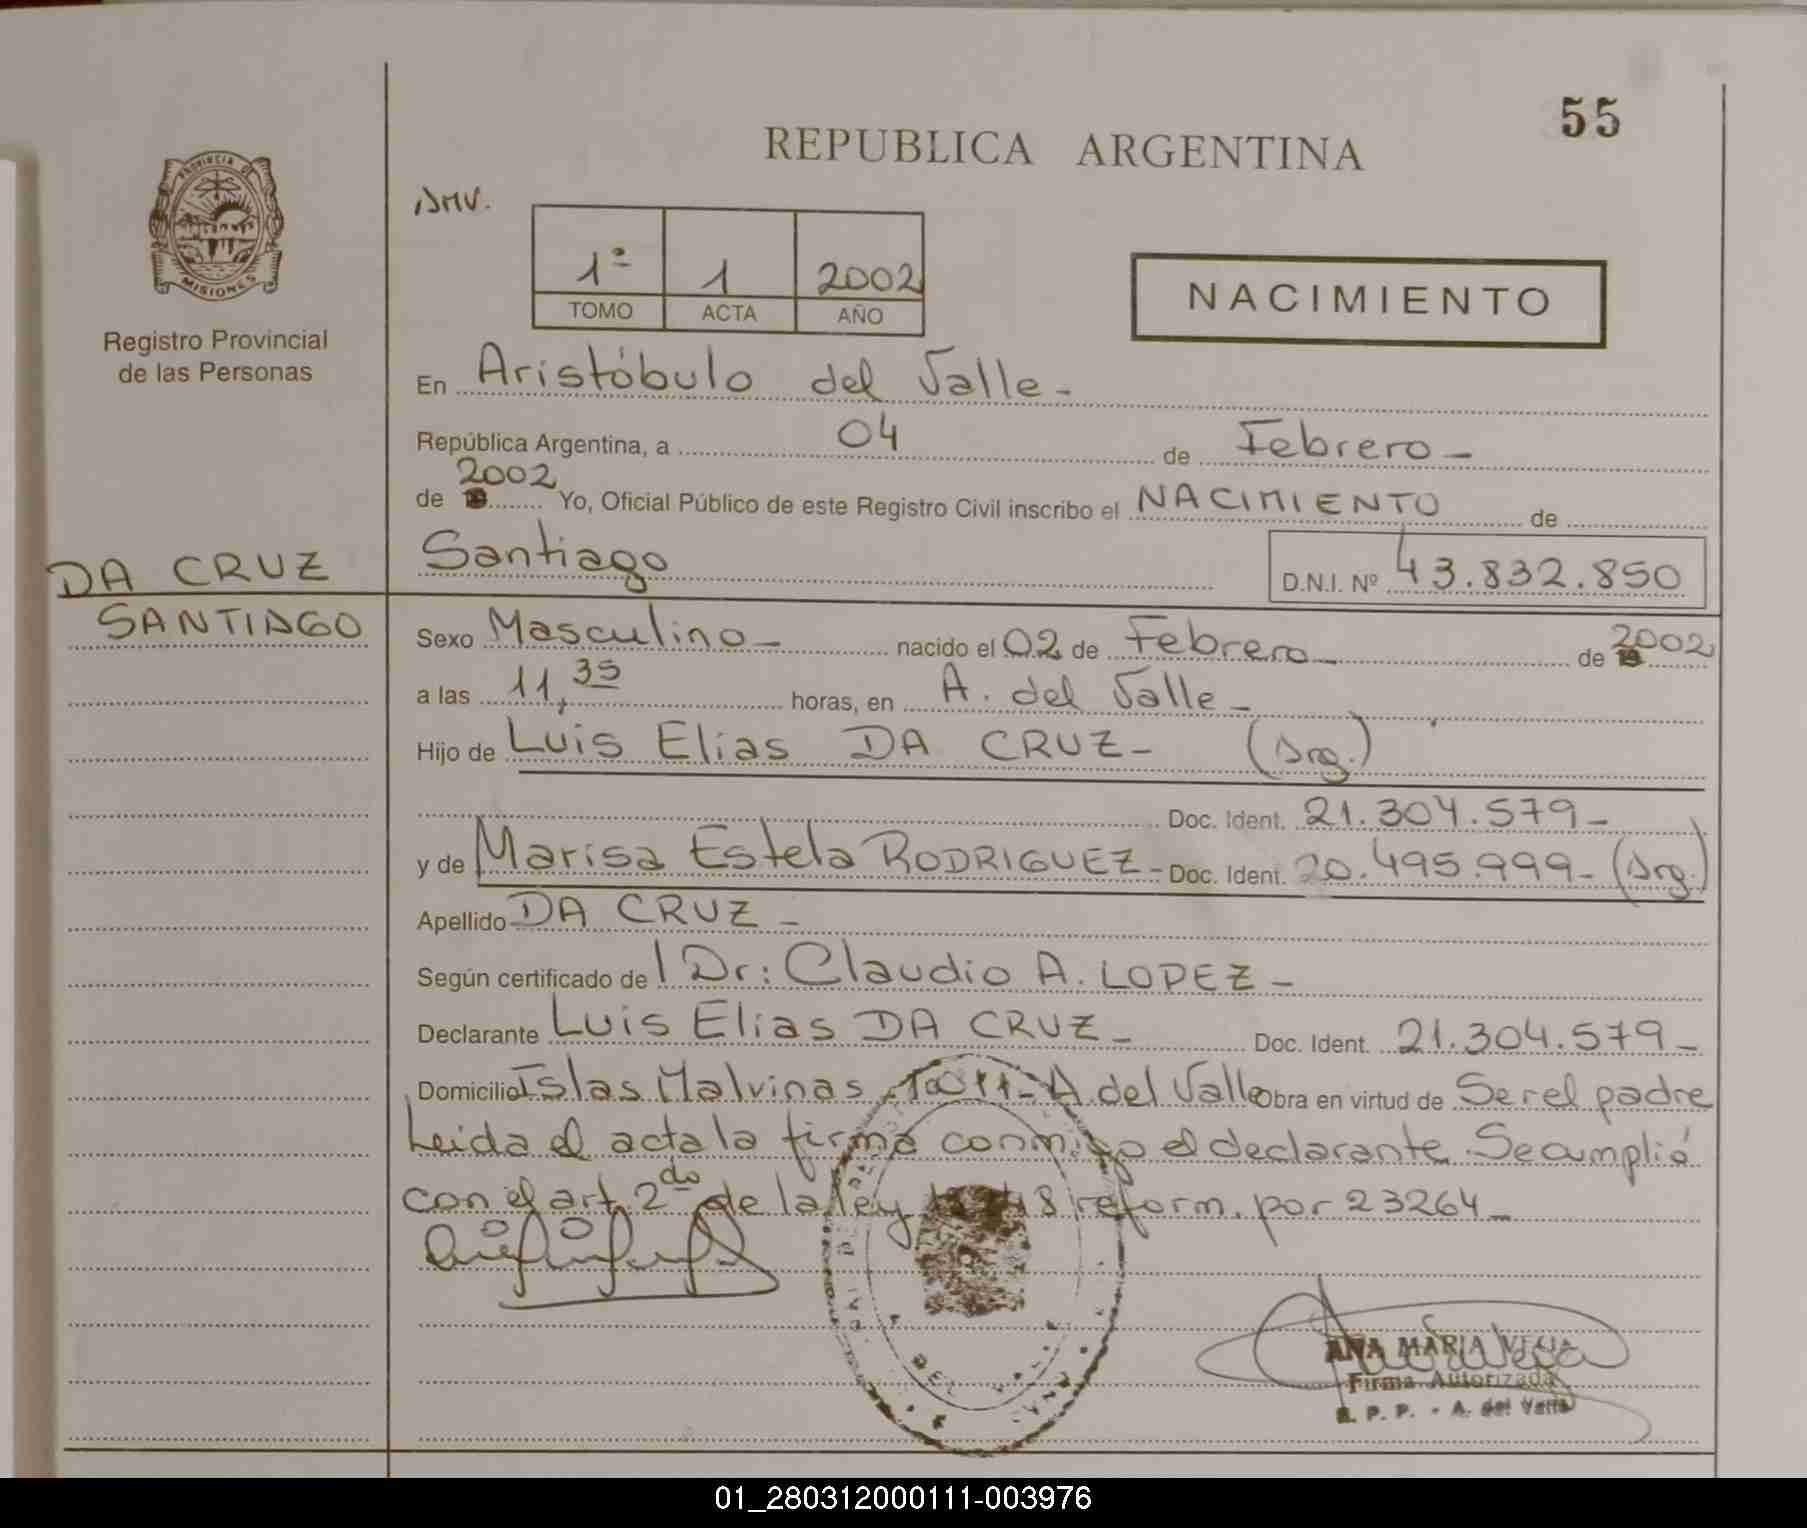 55
REPUBLICA ARGENTINA
PROVINCIA DE
MISIONES
Registro Provincial
de las Personas
1º 1 2002
TOMO ACTA AÑO
NACIMIENTO
En Aristóbulo del Valle-
República Argentina, a 04 de Febrero-
de 2002 Yo, Oficial Público de este Registro Civil inscribo el NACIMIENTO de
DA CRUZ
SANTIAGO
Santiago D.N.I. Nº 43.832.850
Sexo Masculino- nacido el 02 de Febrero- de 2002
a las 11,35 horas, en A. del Valle-
Hijo de Luis Elias DA CRUZ- (Arg.)
Doc. Ident. 21.304.579-
y de Marisa Estela RODRIGUEZ- Doc. Ident. 20.495.999- (Arg.)
Apellido DA CRUZ-
Según certificado de Dr: Claudio A. LOPEZ-
Declarante Luis Elias DA CRUZ- Doc. Ident. 21.304.579-
Domicilio Islas Malvinas A. del Valle Obra en virtud de Ser el padre
Leida el acta la firma conmigo el declarante. Se cumplió
con el art. 2do de la ley reform. por 23264-
ANA MARIA
Firma Autorizada
R. P. P. - A. del Valle
01_280312000111-003976